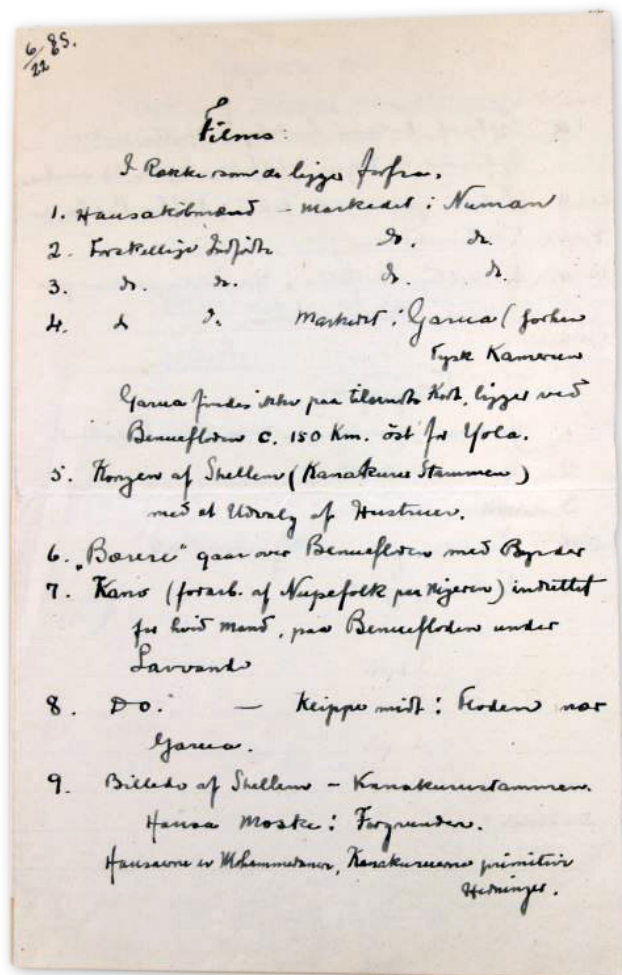 6/22 85.
Films:
I Række som de ligge forfra.
1. Hausakøbmænd – Markedet i Numan
2. Forskellige Indfødte do. do.
3. do. do. do. do.
4. do do. Markedet i Garua (forhen
Tysk Kamerun
Garua findes ikke paa tilsendte Kort, ligger ved
Benuefloden c. 150 Km. öst for Yola.
5. Kongen af Shellem (Kanakuru Stammen)
med et Udvalg af Hustruer.
6. „Bærere" gaar over Benuefloden med Byrder
7. Kano (forarb. af Nupefolk paa Nigeren) indrettet
for hvid Mand, paa Benuefloden under
Lavvande
8. Do. — Klippe midt i Floden nær
Garua.
9. Billede af Shellem – Kanakurustammen.
Hausa Moske i Forgrunden.
Hausaerne er Mohammedaner, Kanakuruerne primitive
Hedninger.